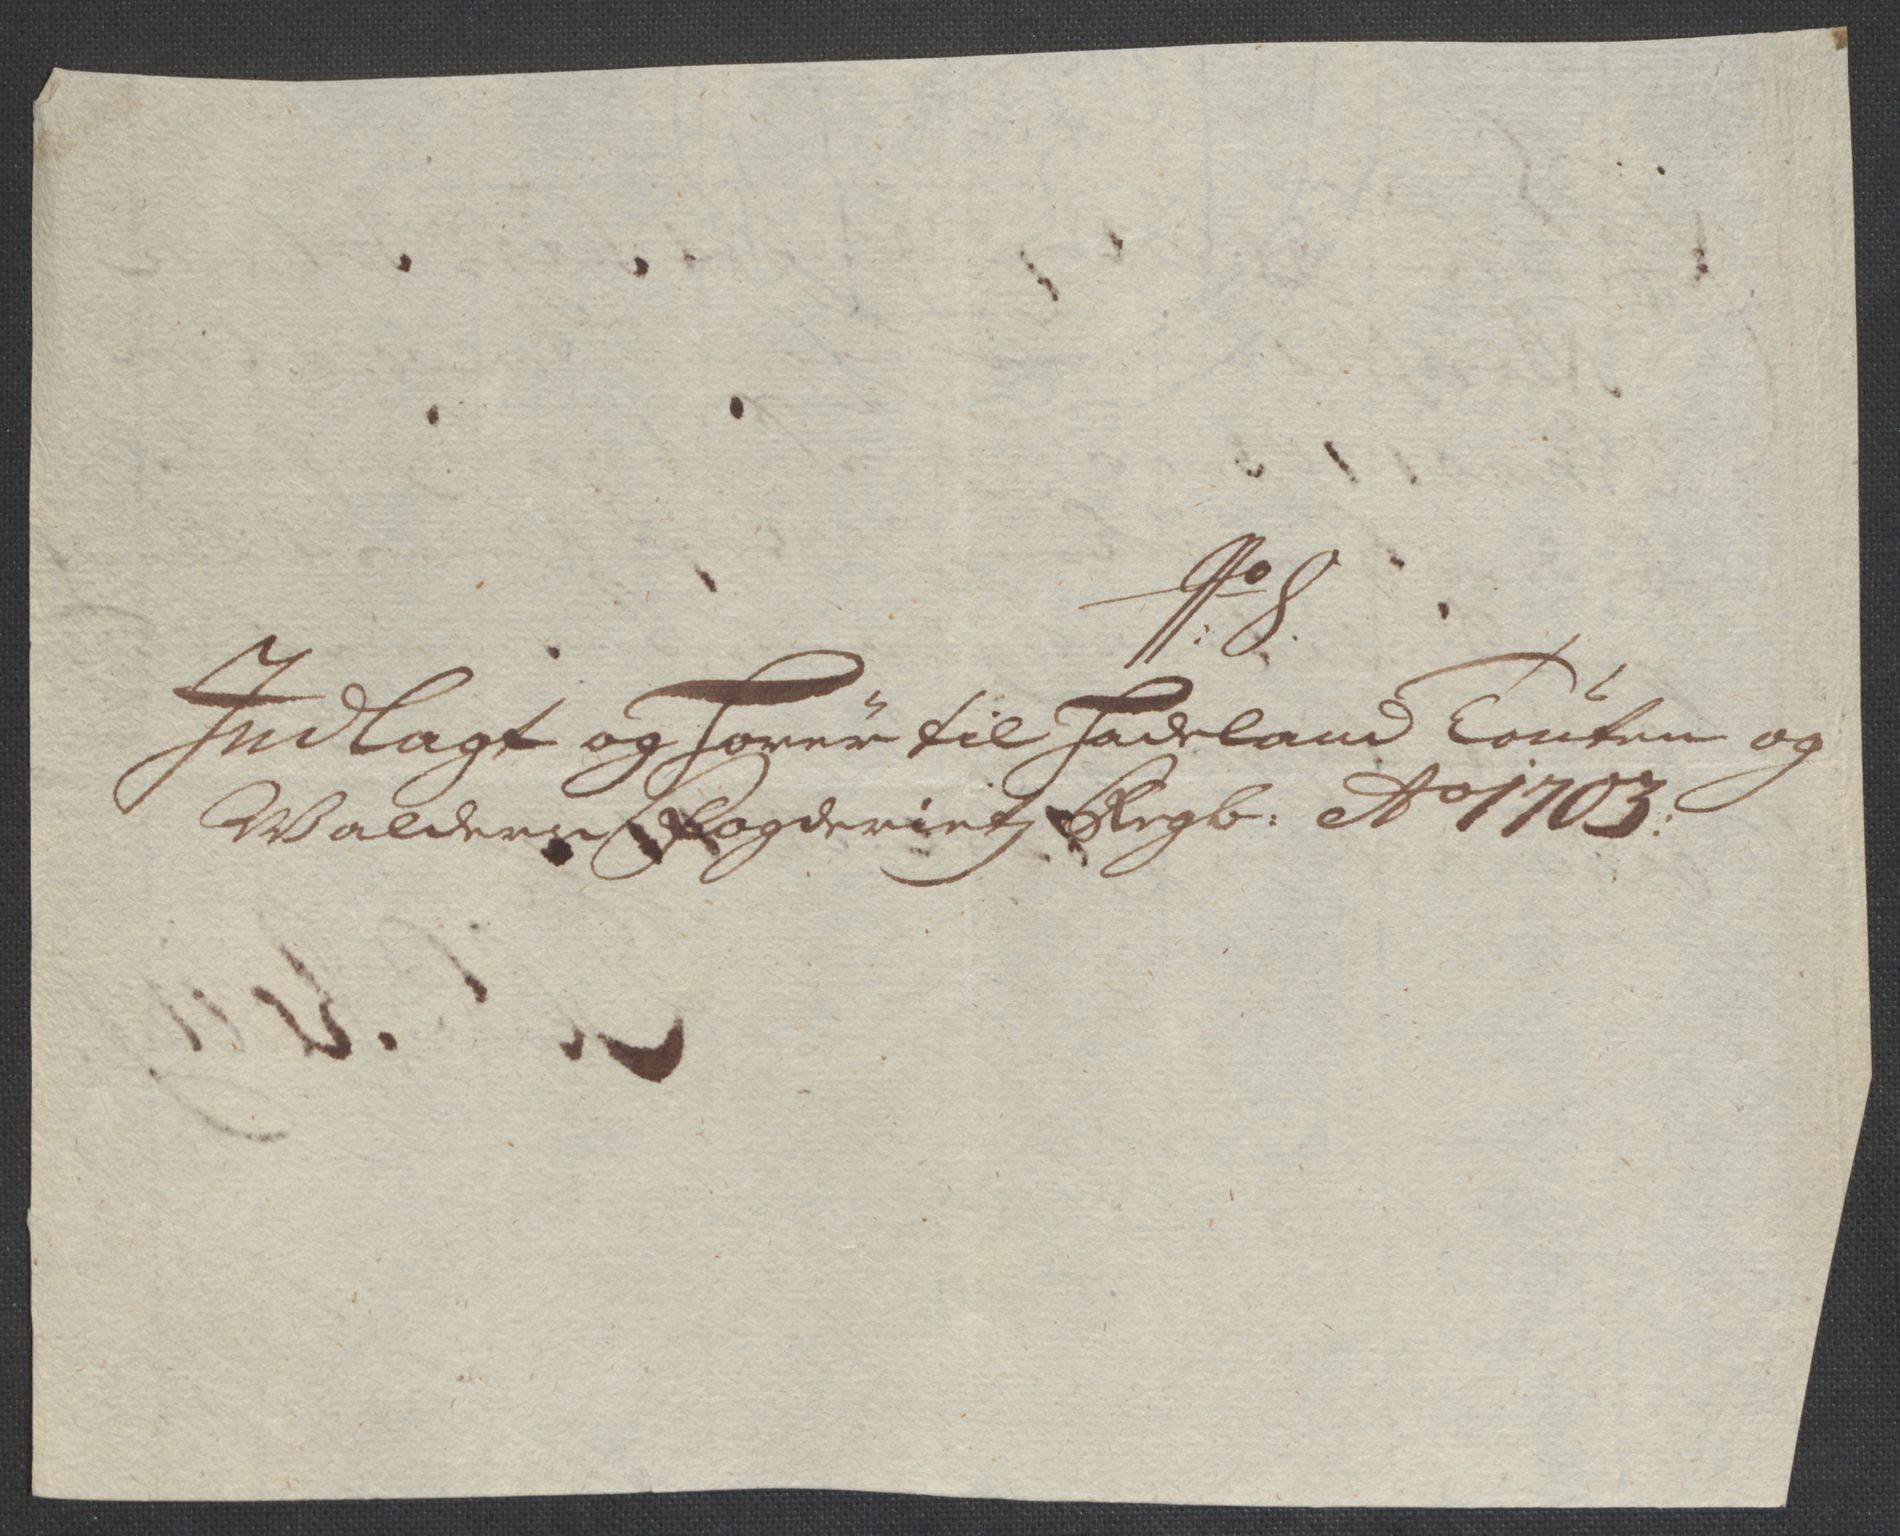 No 8.
Indlagt og Hører til Hadeland Touten og
Walders Fogderietz Regb: Ao 1703: